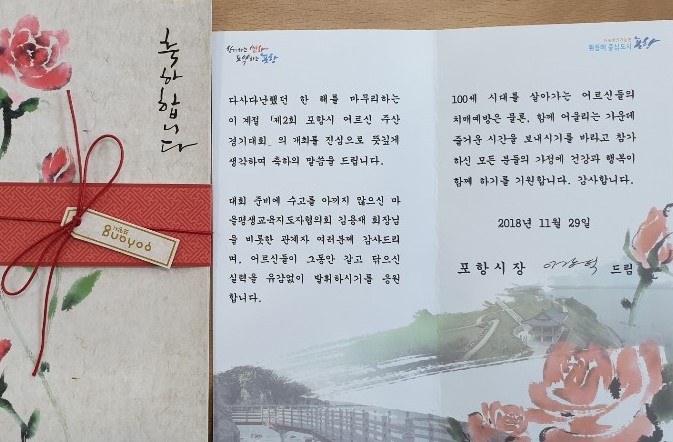 축하합니다
함께하는 변화
도약하는 포항
다사다난했던 한 해를 마무리하는
이 계절 「제2회 포항시 어르신 주산
경기대회」의 개최를 진심으로 뜻깊게
생각하며 축하의 말씀을 드립니다.
대회 준비에 수고를 아끼지 않으신 마
을평생교육지도자협의회 김용재 회장님
을 비롯한 관계자 여러분께 감사드리
며, 어르신들이 그동안 갈고 닦으신
실력을 유감없이 발휘하시기를 응원
합니다.
환동해 중심도시 포항
100세 시대를 살아가는 어르신들의
치매예방은 물론, 함께 어울리는 가운데
즐거운 시간을 보내시기를 바라고 참가
하신 모든 분들의 가정에 건강과 행복이
함께 하기를 기원합니다. 감사합니다.
2018년 11월 29일
포항시장 이강덕 드림